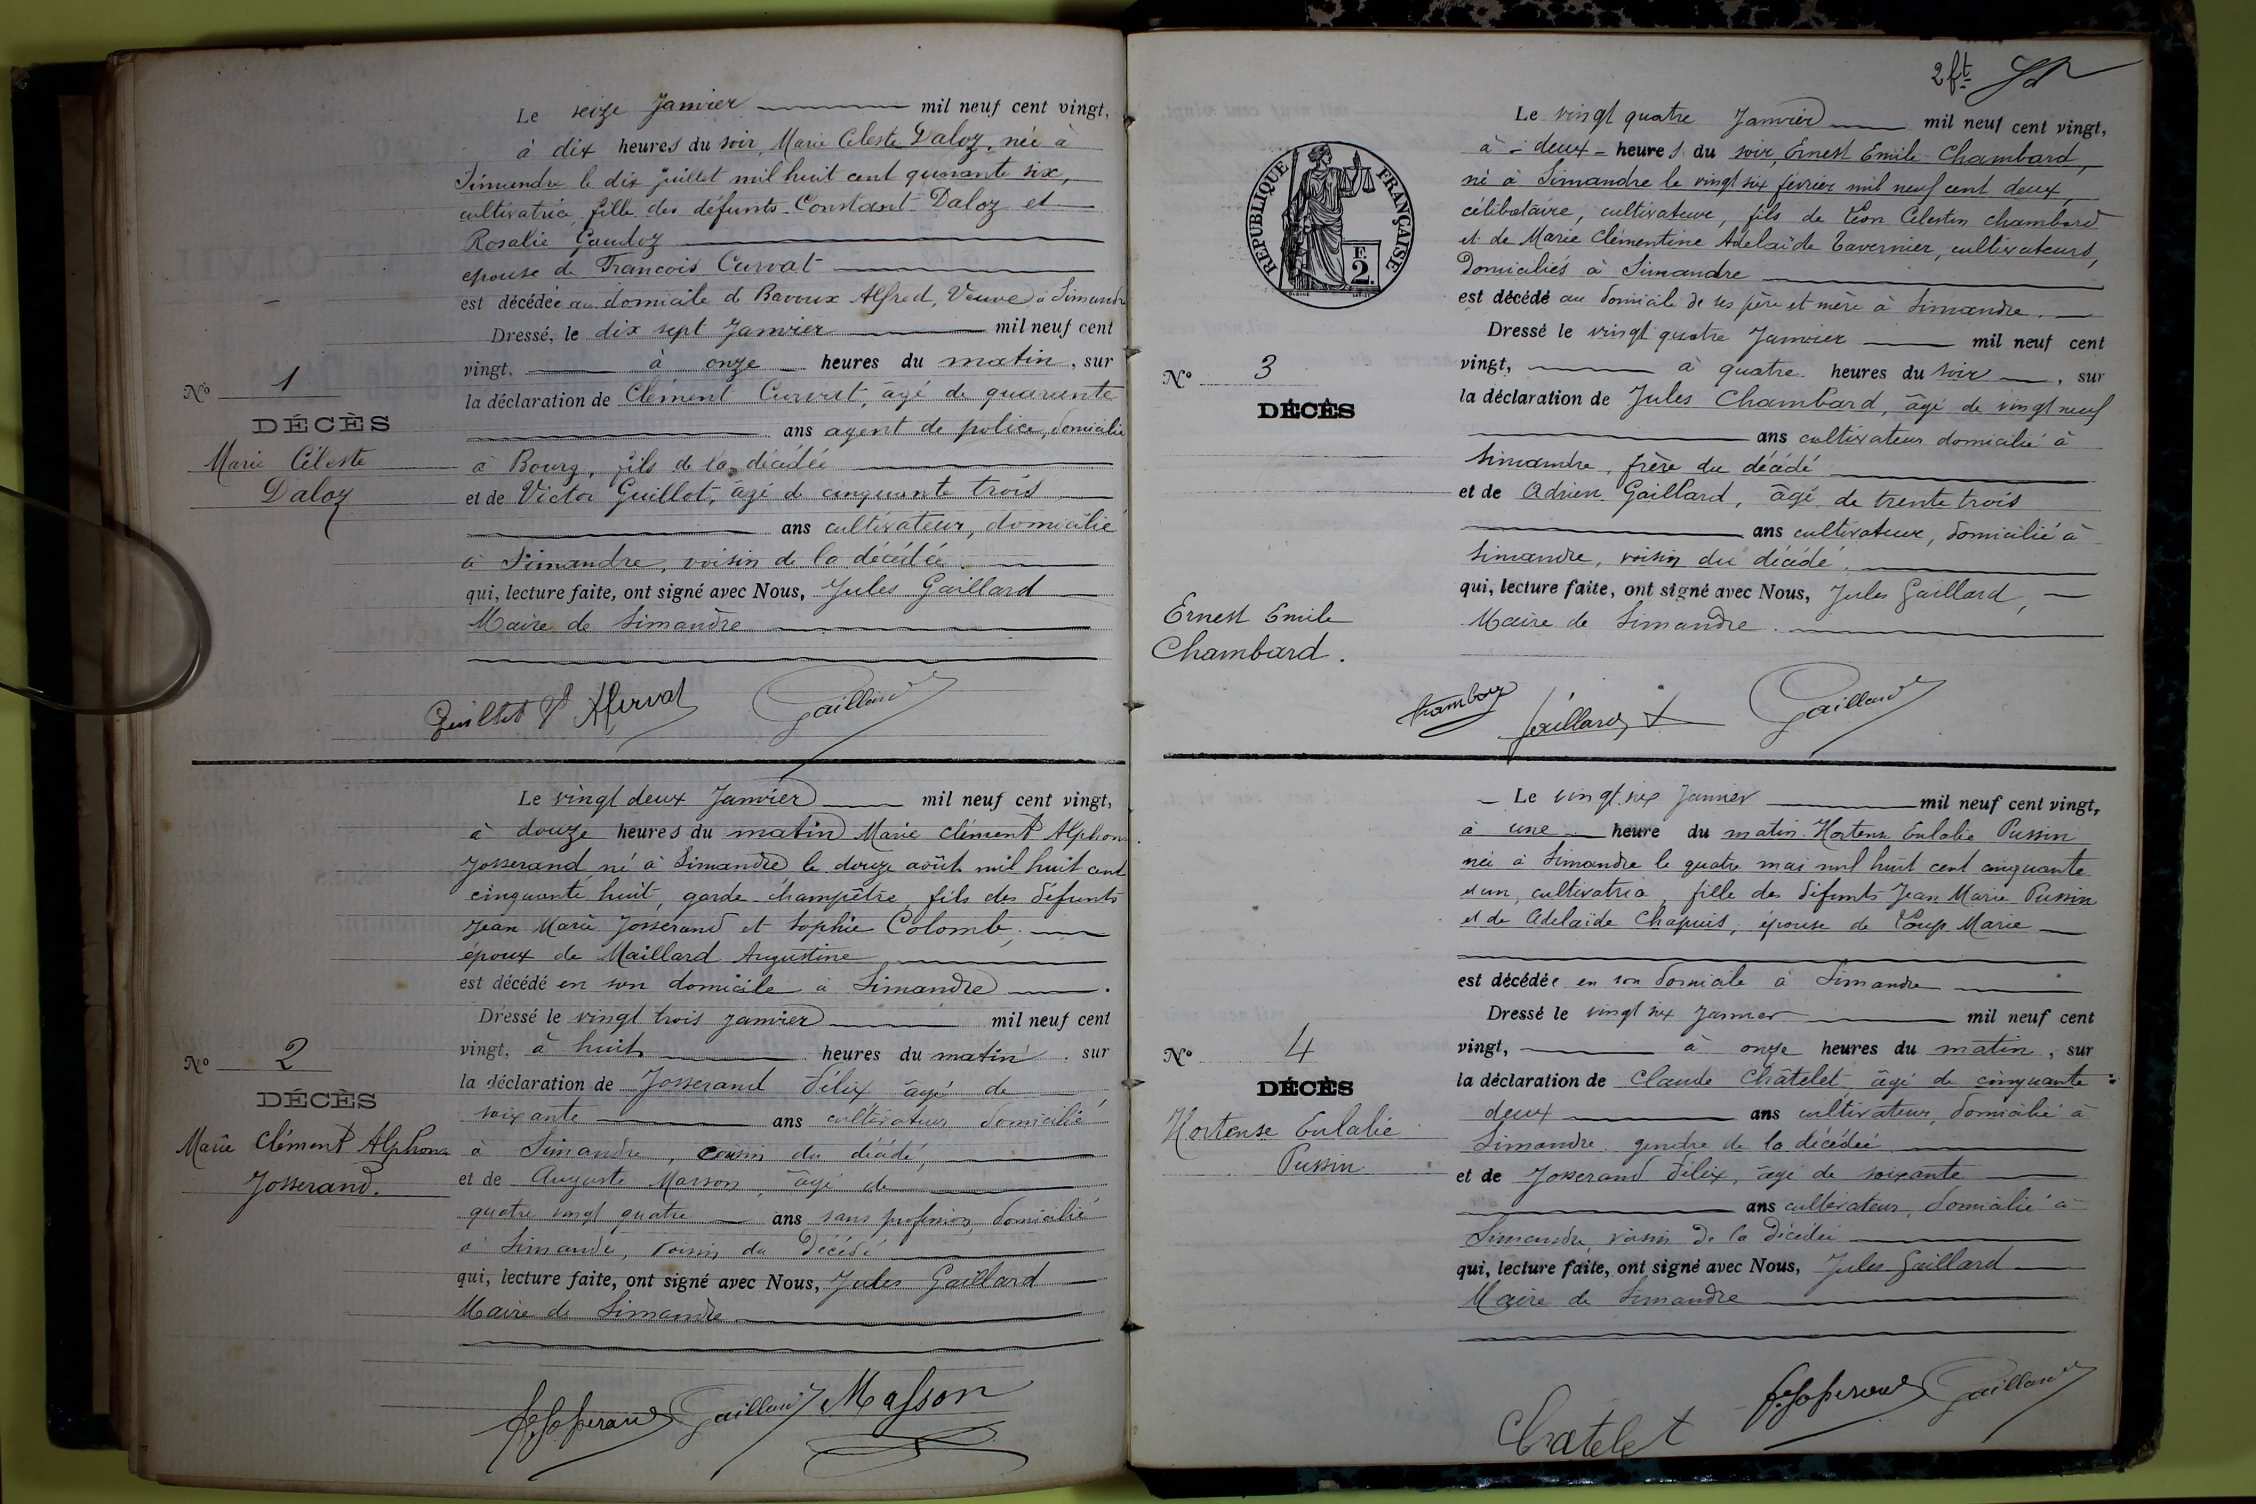 Le seize Janvier mil neuf cent vingt,
à dix heures du soir, Marie Céleste Daloz, née à
Simandre le dix juillet mil huit cent quarante six,
cultivatrice, fille des défunts Constant Daloz et
Rosalie Gaudoz
épouse de Francois Curvat
est décédée au domicile de Bavoux Alfred, Veuve à Simandre
Dressé, le dix sept Janvier mil neuf cent
vingt, à onze heures du matin, sur
la déclaration de Clément Curvat, âgé de quarante
ans agent de police, domicilié
à Bourg, fils de la décédée
et de Victor Guillot, âgé de cinquante trois
ans cultivateur, domicilié
à Simandre, voisin de la décédée.
qui, lecture faite, ont signé avec Nous, Jules Gaillard
Maire de Simandre
Nº 1
DÉCÈS
Marie Céleste
Daloz
Gaillard
Le vingt deux Janvier mil neuf cent vingt,
à douze heures du matin Marie Clément Alphons
Josserand né à Simandre le douze août mil huit cent
cinquante huit, garde-champêtre, fils des défunts
Jean Marie Josserand et Sophie Colomb,
époux de Maillard Augustine
est décédé en son domicile à Simandre.
Dressé le vingt trois Janvier mil neuf cent
vingt, à huit heures du matin, sur
la déclaration de Josserand Félix âgé de
soixante ans cultivateur domicilié
à Simandre, cousin du décédé,
et de Auguste Masson, âgé de
quatre vingt quatre ans sans profession, domicilié
à Simandre, voisin du décédé
qui, lecture faite, ont signé avec Nous, Jules Gaillard
Maire de Simandre
Nº 2
DÉCÈS
Marie Clément Alphons
Josserand.
Gaillard Masson
2 ft
RÉPUBLIQUE FRANÇAISE
F.
2
Le vingt quatre Janvier mil neuf cent vingt,
à deux heures du soir, Ernest Emile Chambard,
né à Simandre le vingt six février mil neuf cent deux,
célibataire, cultivateur, fils de Léon Célestin Chambard
et de Marie Clémentine Adelaïde Tavernier, cultivateurs,
domiciliés à Simandre
est décédé au domicile de ses père et mère à Simandre.
Dressé le vingt quatre Janvier mil neuf cent
vingt, à quatre heures du soir, sur
la déclaration de Jules Chambard, âgé de vingt neuf
ans cultivateur domicilié à
Simandre, frère du décédé
et de Adrien Gaillard, âgé de trente trois
ans cultivateur, domicilié à
Simandre, voisin du décédé,
qui, lecture faite, ont signé avec Nous, Jules Gaillard,
Maire de Simandre.
Nº 3
DÉCÈS
Ernest Emile
Chambard.
Gaillard
Le vingt six Janvier mil neuf cent vingt,
à une heure du matin Hortense Eulalie Pussin
née à Simandre le quatre mai mil huit cent cinquante
et un, cultivatrice, fille des défunts Jean Marie Pussin
et de Adelaïde Chapuis, épouse de Loup Marie
est décédée en son domicile à Simandre
Dressé le vingt six Janvier mil neuf cent
vingt, à onze heures du matin, sur
la déclaration de Claude Châtelet âgé de cinquante
deux ans cultivateur, domicilié à
Simandre gendre de la décédée
et de Josserand Félix, âgé de soixante
ans cultivateur, domicilié à
Simandre voisin de la décédée
qui, lecture faite, ont signé avec Nous, Jules Gaillard
Maire de Simandre
Nº 4
DÉCÈS
Hortense Eulalie
Pussin
Chatelet Gaillard